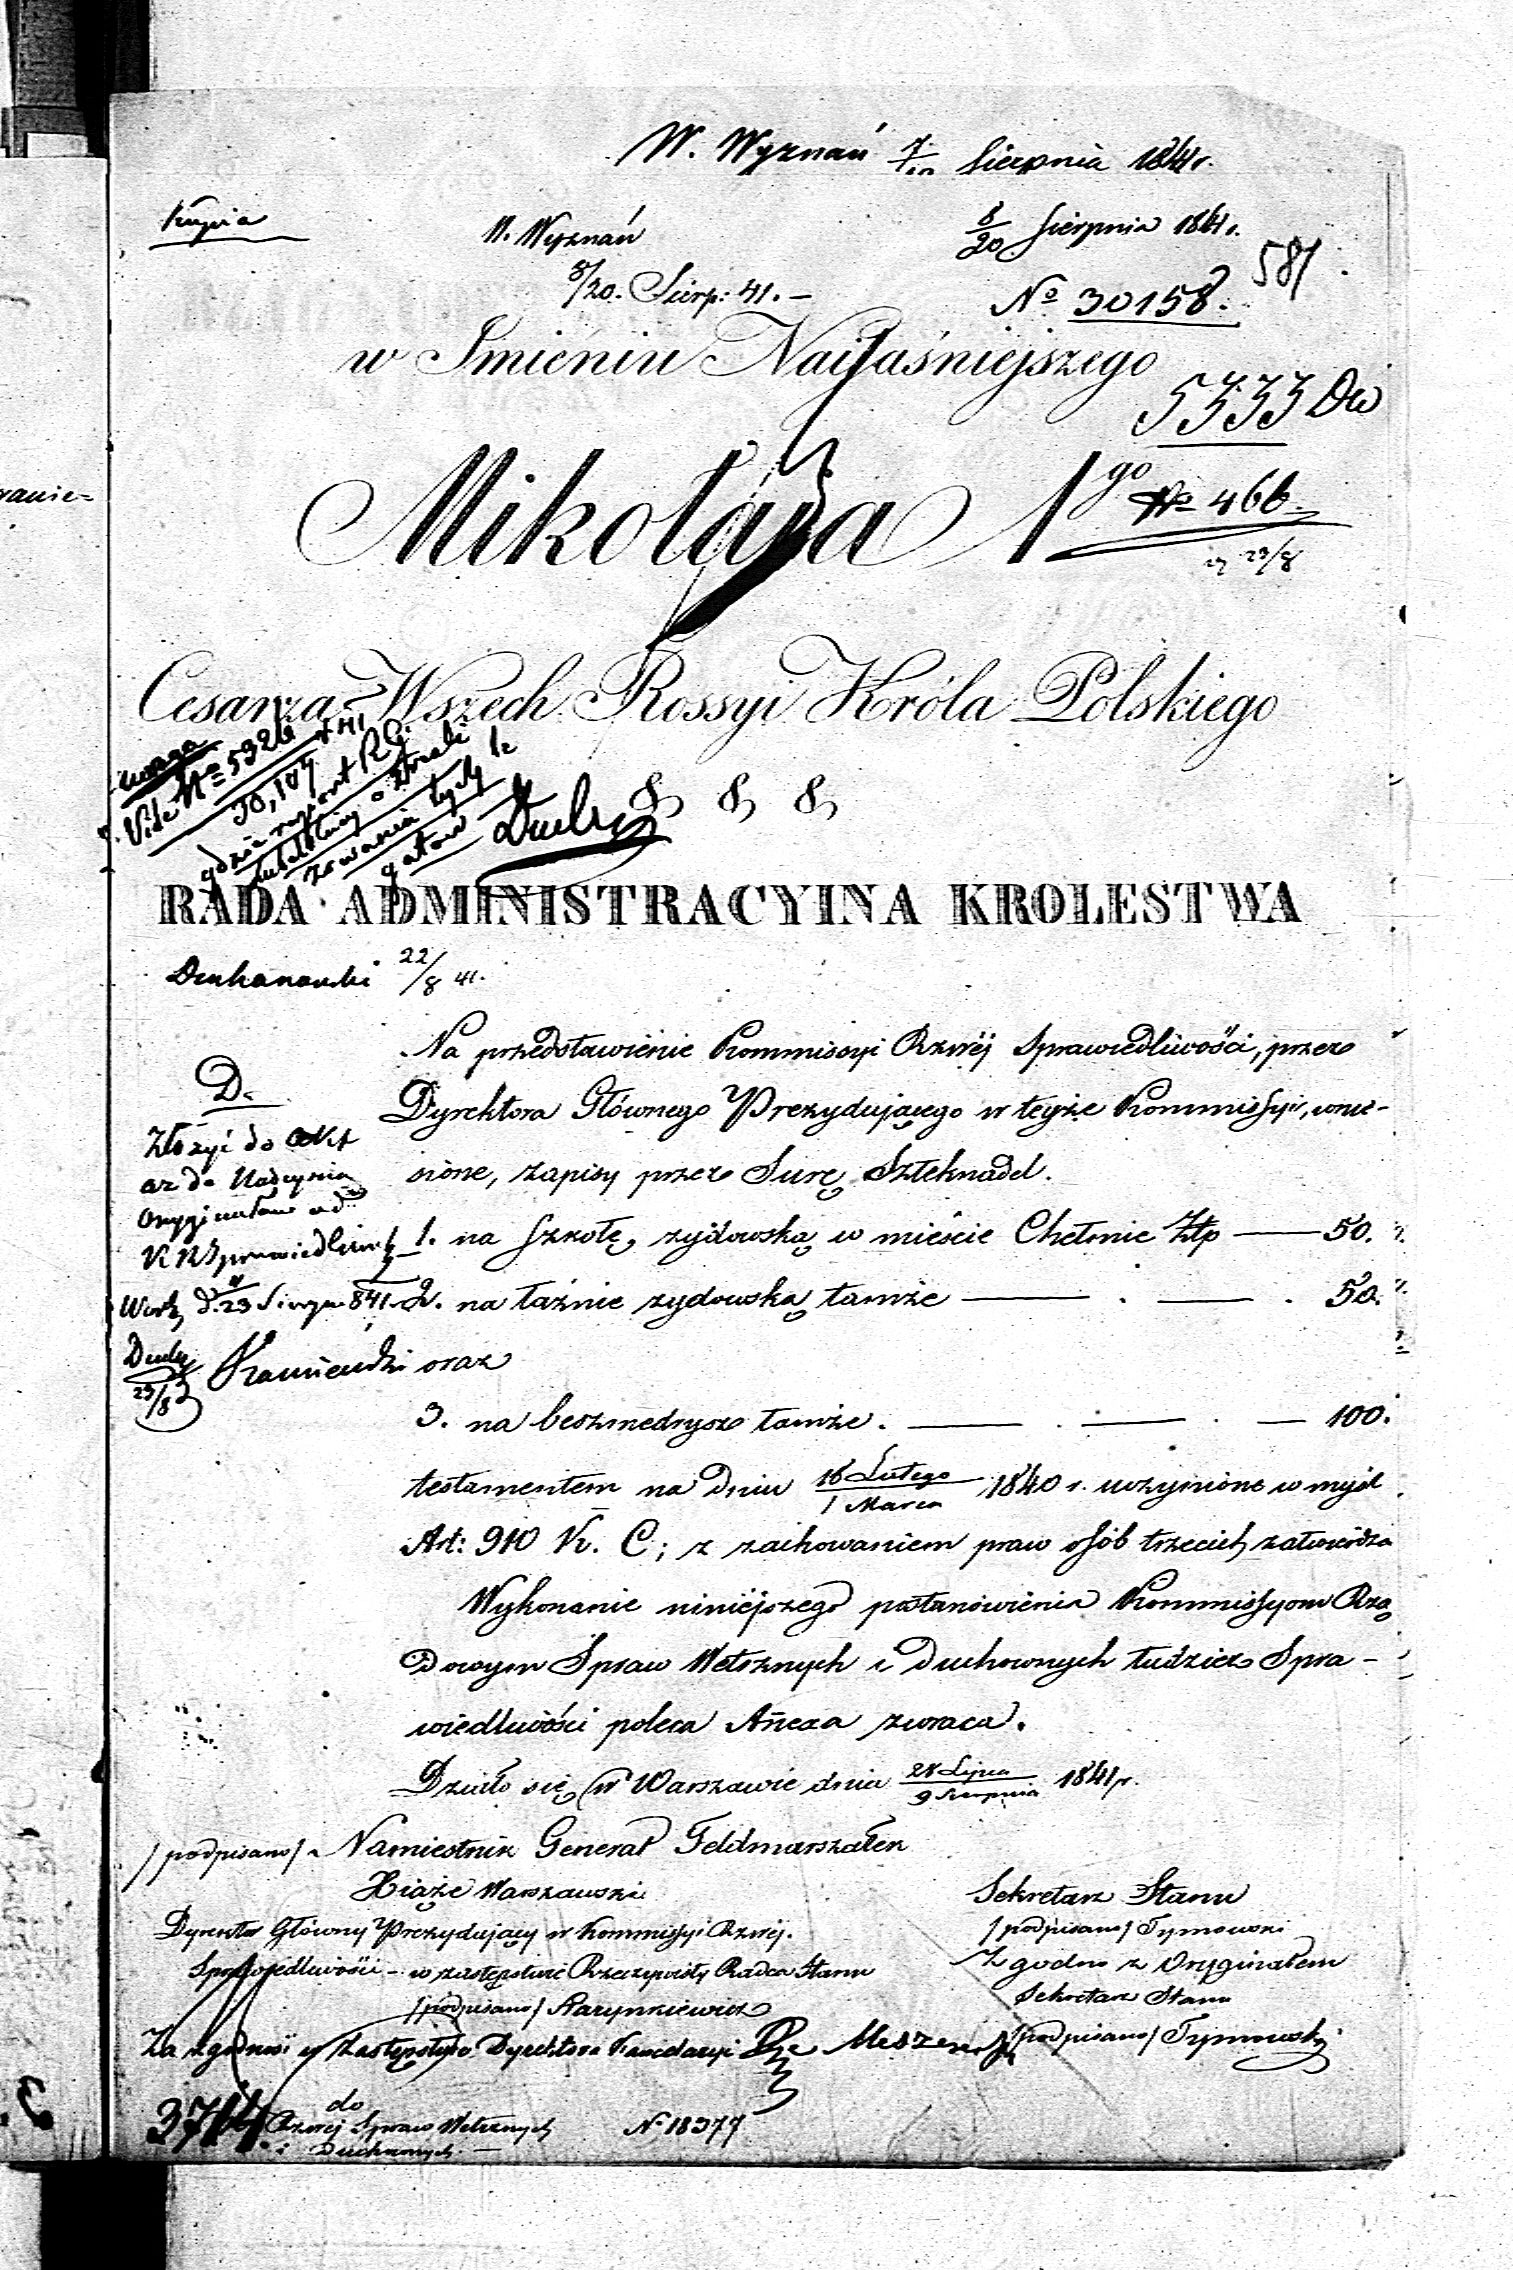 W. Wyznań 7/19 Sierpnia 1841 r.
Kopia
W. Wyznań
8/20. Sierp: 41. –
8/20 Sierpnia 1841 r.
581
No 30158.
w Imieniu Najjaśniejszego
5333 Dw
Mikołaja 1go
No 466
23/8
Cesarza Wszech Rossyi Króla Polskiego
& & &
uwaga
Vide No 5326 841
30,104
gdzie raport RG.
Lubelskiej o
tych le
gatów
RADA ADMINISTRACYINA KROLESTWA
22/8 41.
Na przedstawienie Kommissyi Rzwéj Sprawiedliwości, przez
Dyrektora Głównego Prezydującego w teyże Kommissyi, wnie-
sione, zapisy przez Surę Szteknadel.
1. na szkołę żydowską w mieście Chełmie Złp — 50.
2. na łaźnie żydowską tamże — . — . 50.
oraz
3. na beszmedrysz tamże. — . — . — 100.
testamentem na dniu 16 Lutego / 1 Marca 1840 r. uczynione w myśl
Art: 910 K. C; z zachowaniem praw osób trzecich zatwierdza
Wykonanie niniejszego postanowienia Kommissyom Rzą
dowym Spraw Wewznych i Duchownych tudzież Spra-
wiedliwości poleca Anexa zwraca.
Działo się w Warszawie dnia 28 Lipca / 9 Sierpnia 1841 r.
D.
Złożyć do Akt
aż do Nadejścia
Oryginału od
K R Sprawiedliwości
d. 11/23 Sierpn 841.
23/8
/podpisano/ Namiestnik Generał Feldmarszałek
Xiąże Warszawski
Dyrektor Główny Prezydujący w Kommissyi Rzwéj.
Sprawiedliwości – w zastępstwie Rzeczywisty Radca Stanu
/podpisano/ Karynkiewicz
Sekretarz Stanu
/podpisano/ Tymowski
Zgodno z Oryginałem
Sekretarz Stanu
/podpisano/ Tymowski
Za zgodność w Zastępstwie Dyrektora Kancelaryi
3714.
do
Rzwej Spraw Wewznych
i Duchownych –
N 18377